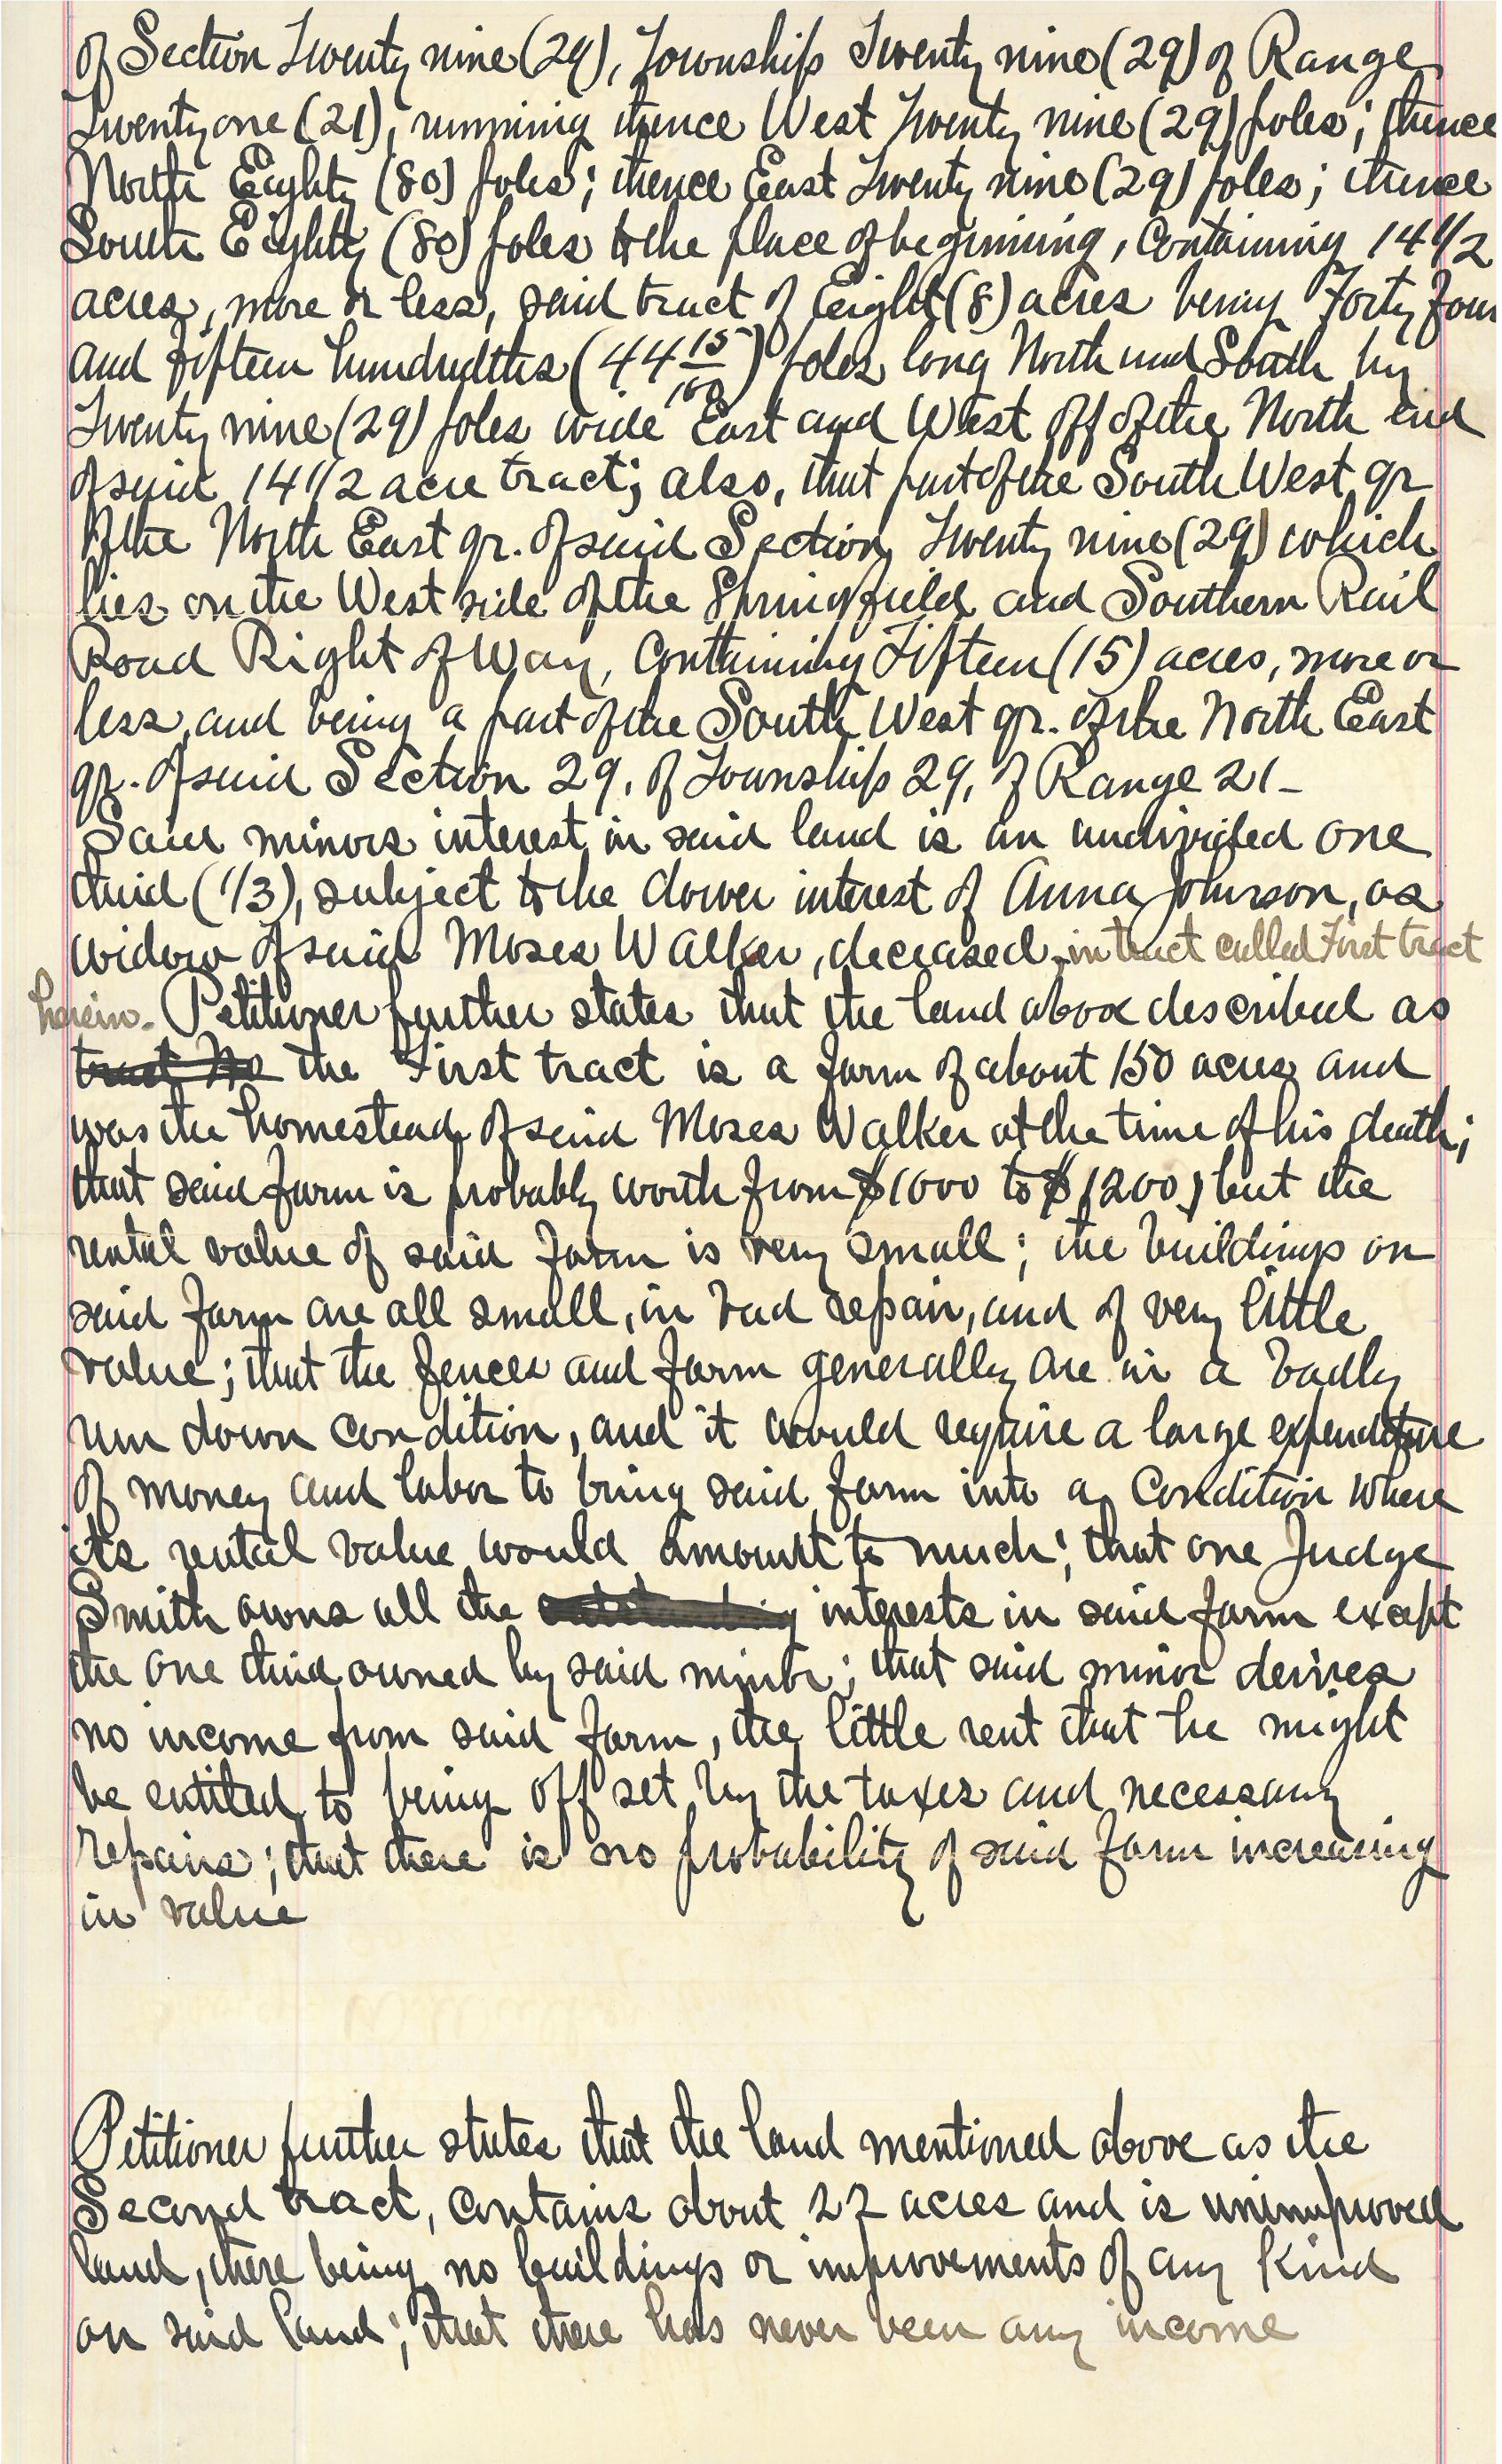 of Section Twenty nine (29), Township Twenty nine (29) of Range
Twenty one (21), running thence West Twenty nine (29) poles; thence
North Eighty (80) poles; thence East Twenty nine (29) poles; thence
South Eighty (80) poles to the place of beginning, Containing 14 1/2
acres, more or less, said tract of Eight (8) acres being Forty four
and fifteen hundredths (44 15/100) poles long North and South by
Twenty nine (29) poles wide East and West off of the North end
of said 14 1/2 acre tract; also, that part of the South West qr
of the North East qr. of said Section Twenty nine (29) which
lies on the West side of the Springfield and Southern Rail
Road Right of Way, Containing Fifteen (15) acres, more or
less, and being a part of the South West qr. of the North East
qr. of said Section 29, of Township 29, of Range 21-
Said minors interest in said land is an undivided one
third (1/3), subject to the dower interest of Anna Johnson, as
widow of said Moses Walker, deceased, in tract called First tract
herein. Petitioner further states that the land above described as
tract No the First tract is a farm of about 150 acres and
was the homestead of said Moses Walker at the time of his death;
that said farm is probably worth from $1000 to $1200, but the
rental value of said farm is very small; the buildings on
said farm are all small, in bad repair, and of very little
value; that the fences and farm generally are in a badly
run down condition, and it would require a large expenditure
of money and labor to bring said farm into a Condition where
its rental value would amount to much; that one Judge
Smith owns all the outstanding interests in said farm except
the one third owned by said minor; that said minor derives
no income from said farm, the little rent that he might
be entitled to being off set by the taxes and necessary
repairs; that there is no probability of said farm increasing
in value
Petitioner further states that the land mentioned above as the
Second tract, Contains about 22 acres and is unimproved
land, there being no buildings or improvements of any Kind
on said land; that there has never been any income